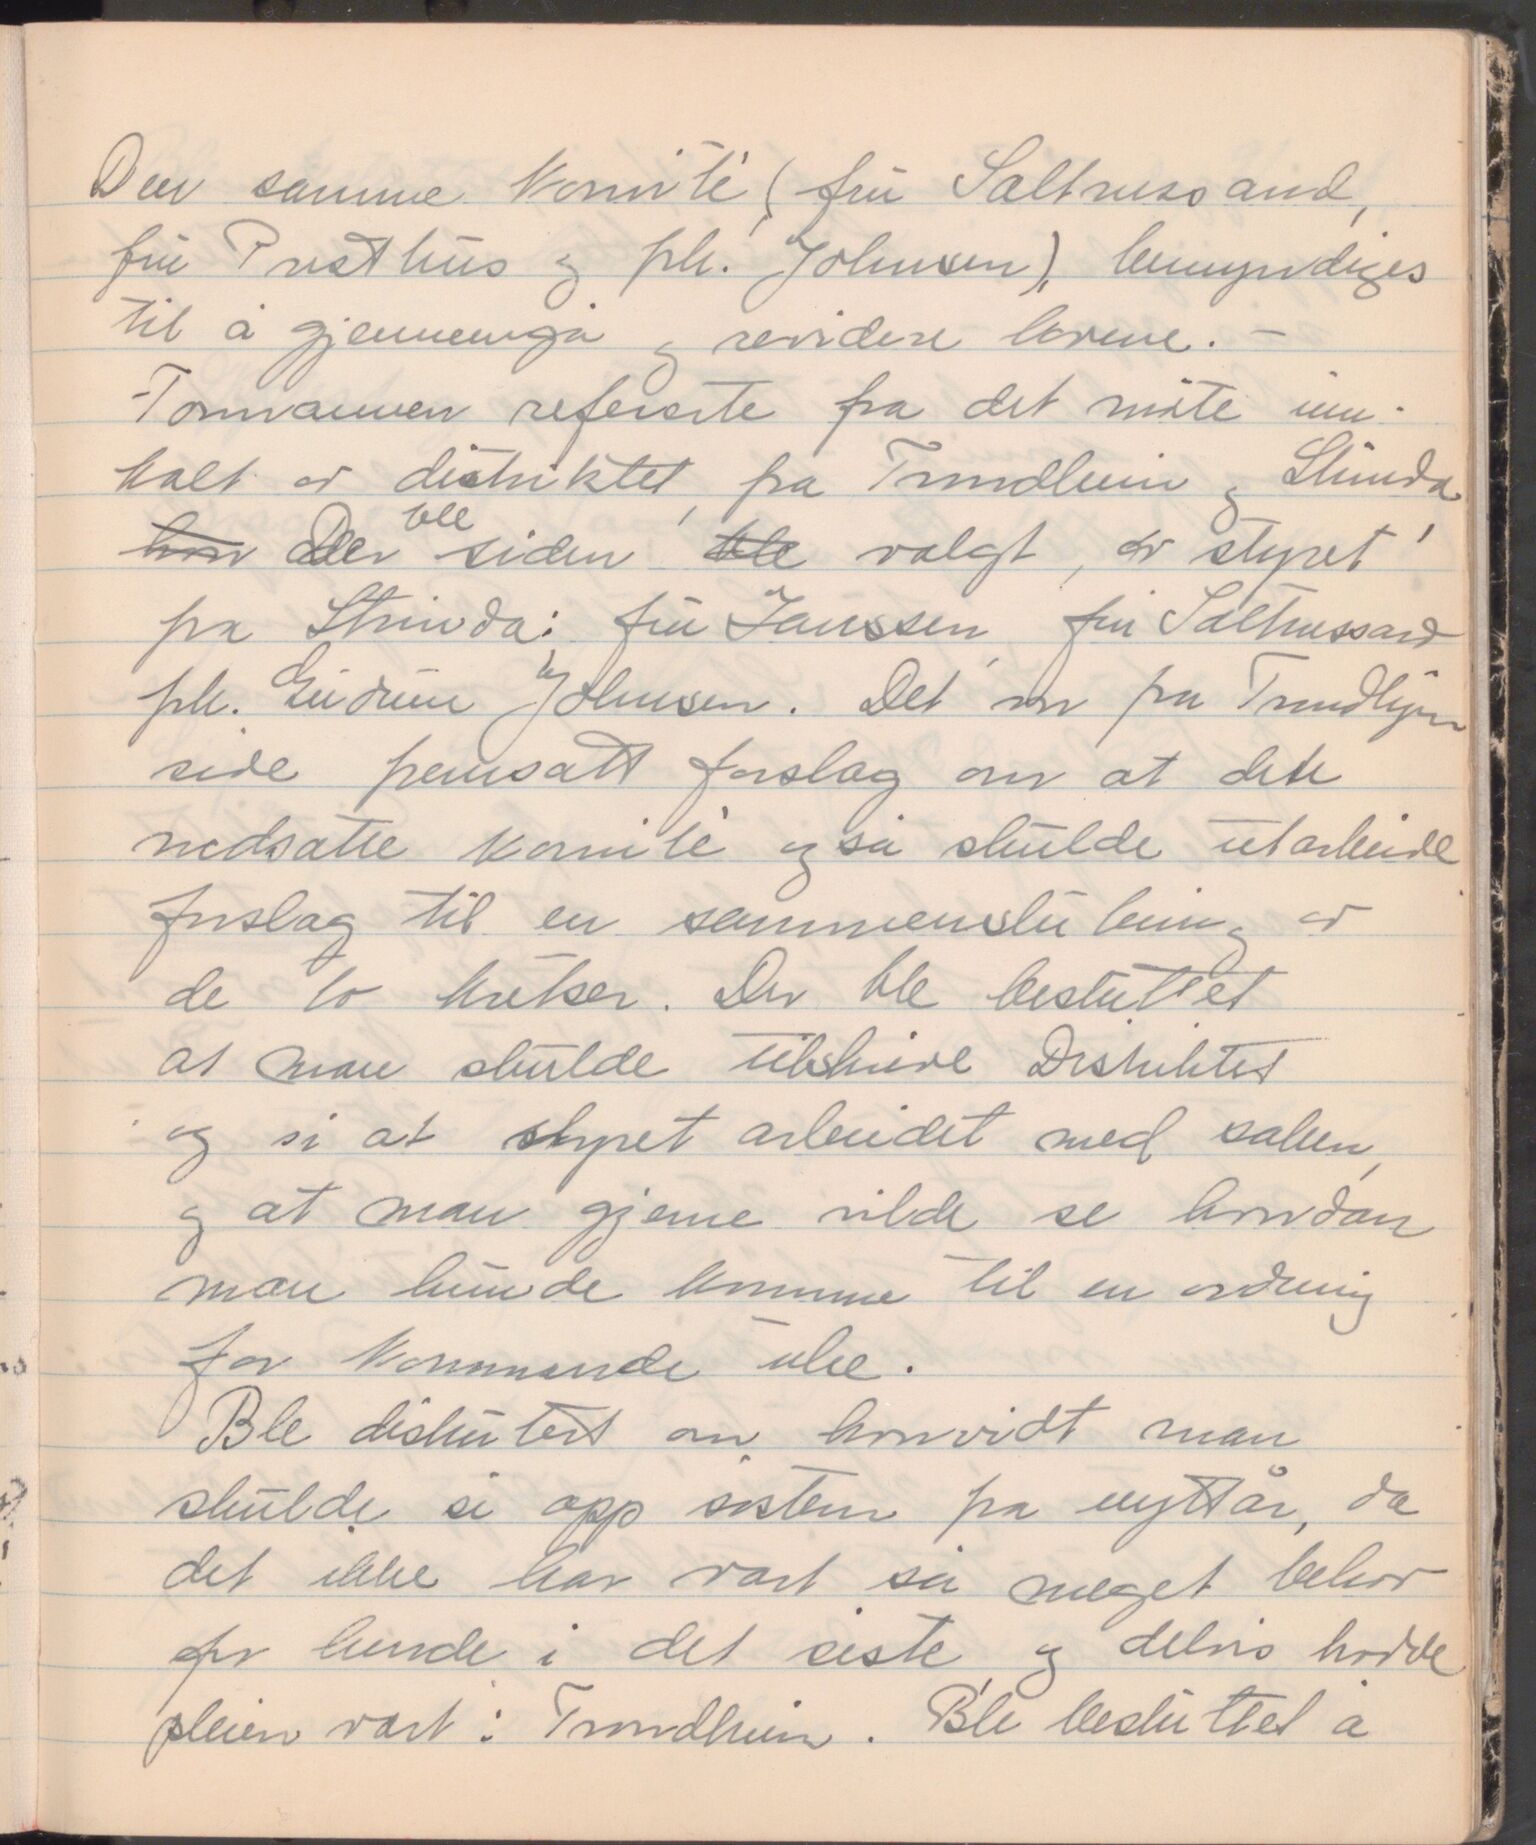 Den samme komité, (fru Saltnessand,
fru Presthus og frk. Johnsen), bemyndiges
til å gjennemgå og revidere lovene. –
Formannen refererte fra det møte inn-
kalt av distriktet, fra Trondheim og Strinda
hvor Der ble siden ble valgt, av styret
fra Strinda: fru Janssen, fru Saltnessand
frk. Gudrun Johnsen. Det var fra Trondhjem
side fremsatt forslag om at dette
nedsatte komité også skulde utarbeide
forslag til en sammenslutning av
de to kretser. Der ble besluttet
at man skulde tilskrive Distriktet
og si at styret arbeidet med saken,
og at man gjerne vilde se hvordan
man kunde komme til en ordning
for kommende uke.
Ble diskutert om hvorvidt man
skulde si opp søsteren fra nyttår, da
det ikke har vært så meget behov
for hende i det siste og delvis hadde
pleien vært i Trondheim. Ble besluttet å